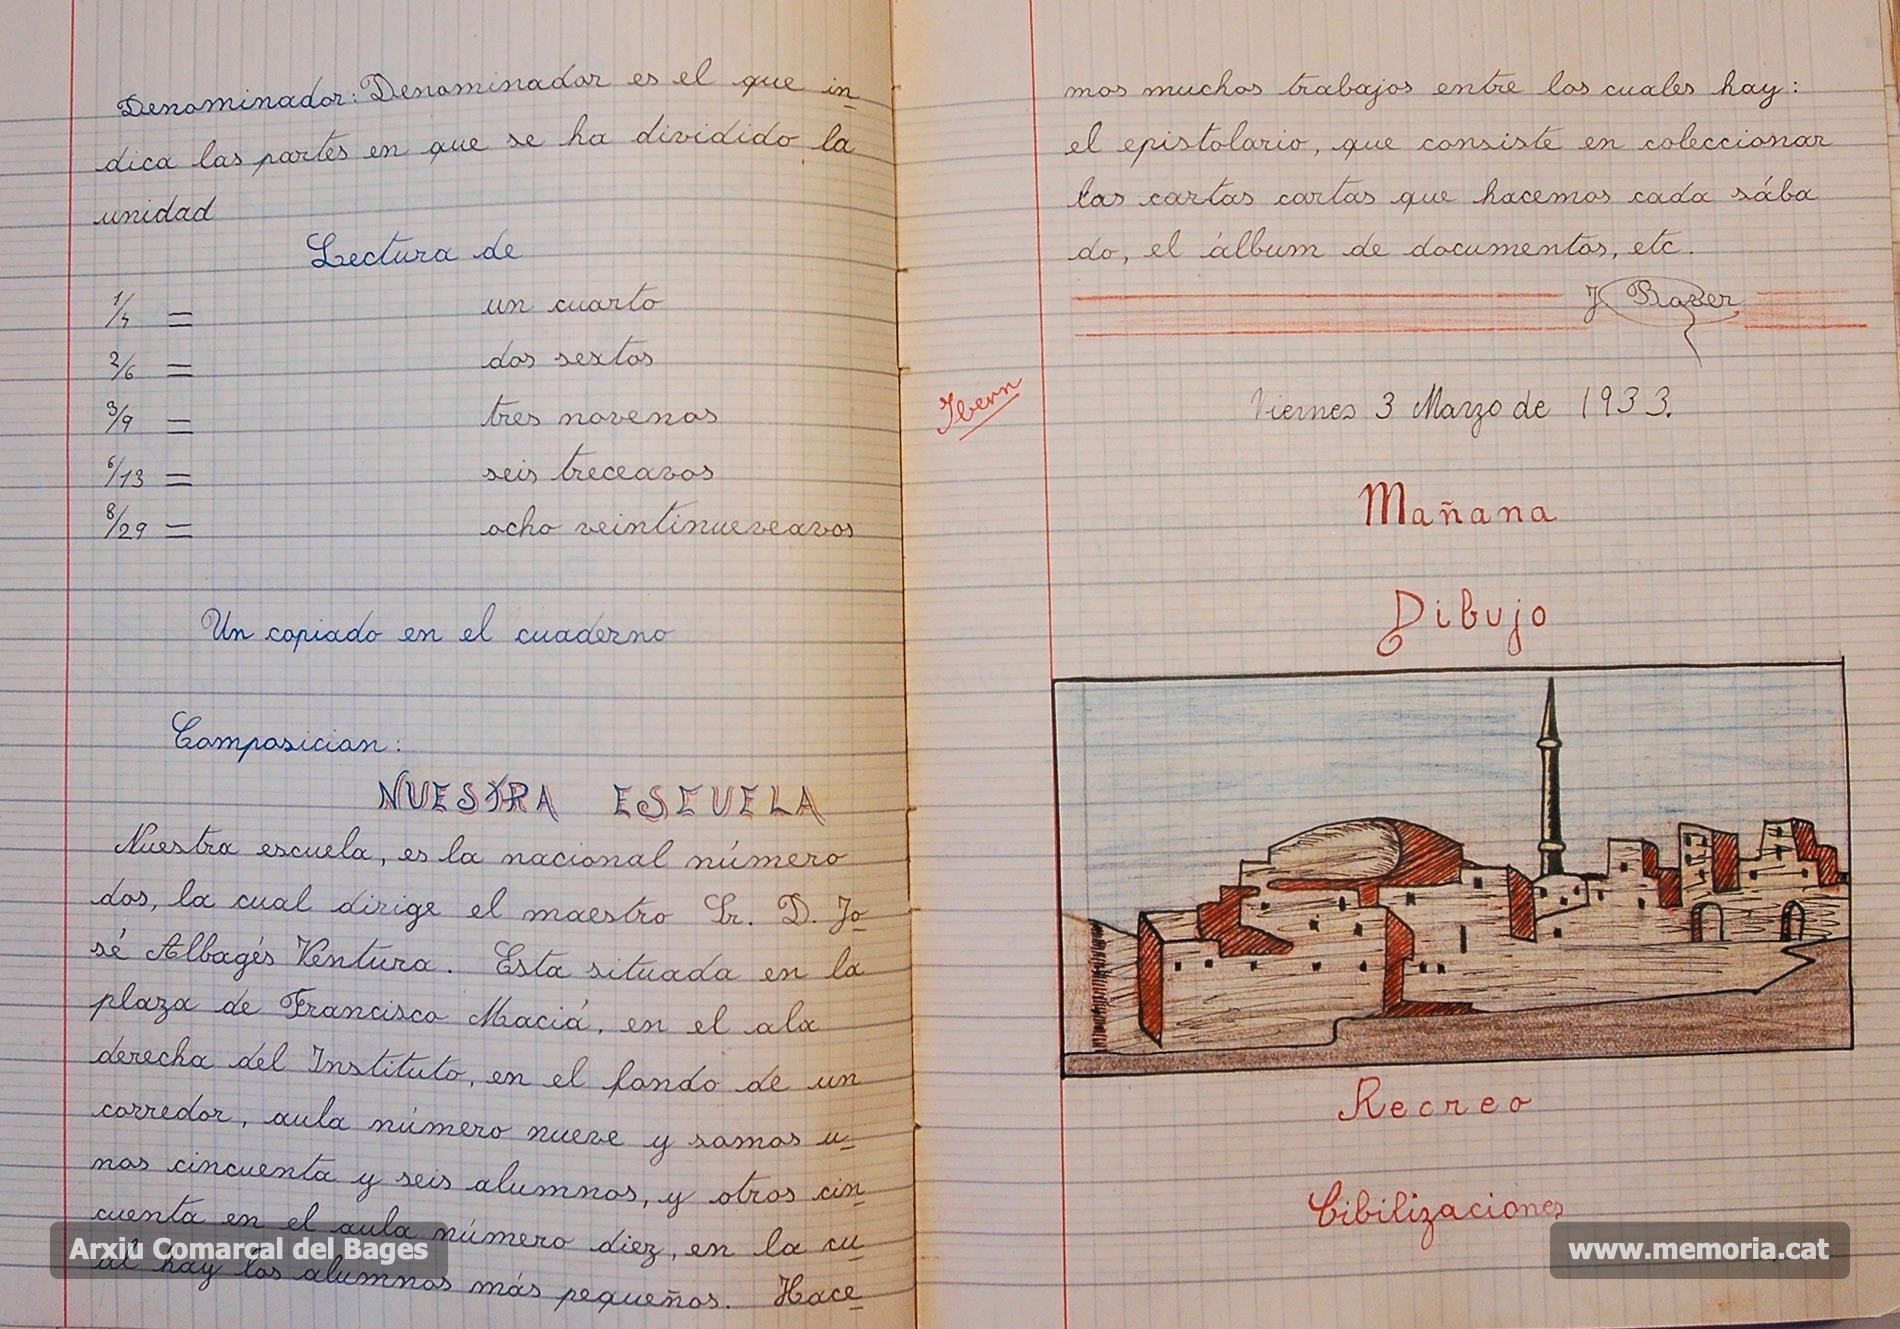 Denominador: Denominador es el que in-
dica las partes en que se ha dividido la
unidad
Lectura de
1/4 = un cuarto
2/6 = dos sextos
3/9 = tres novenos
6/13 = seis treceavos
8/29 = ocho veintinueveavos
Un copiado en el cuaderno
Composicion:
NUESTRA ESCUELA
Nuestra escuela, es la nacional número
dos, la cual dirige el maestro Sr. D. Jo-
sé Albagés Ventura. Esta situada en la
plaza de Francisco Maciá, en el ala
derecha del Instituto, en el fondo de un
corredor, aula número nueve y somos u-
nos cincuenta y seis alumnos, y otros cin-
cuenta en el aula número diez, en la cu-
al hay los alumnos más pequeños. Hace-
Arxiu Comarcal del Bages
mos muchos trabajos entre los cuales hay:
el epistolario, que consiste en coleccionar
las cartas cartas que hacemos cada sába
do, el álbum de documentos, etc.
J.
Ibern
Viernes 3 Marzo de 1933.
Mañana
Dibujo
Recreo
Cibilizaciones
www.memoria.cat